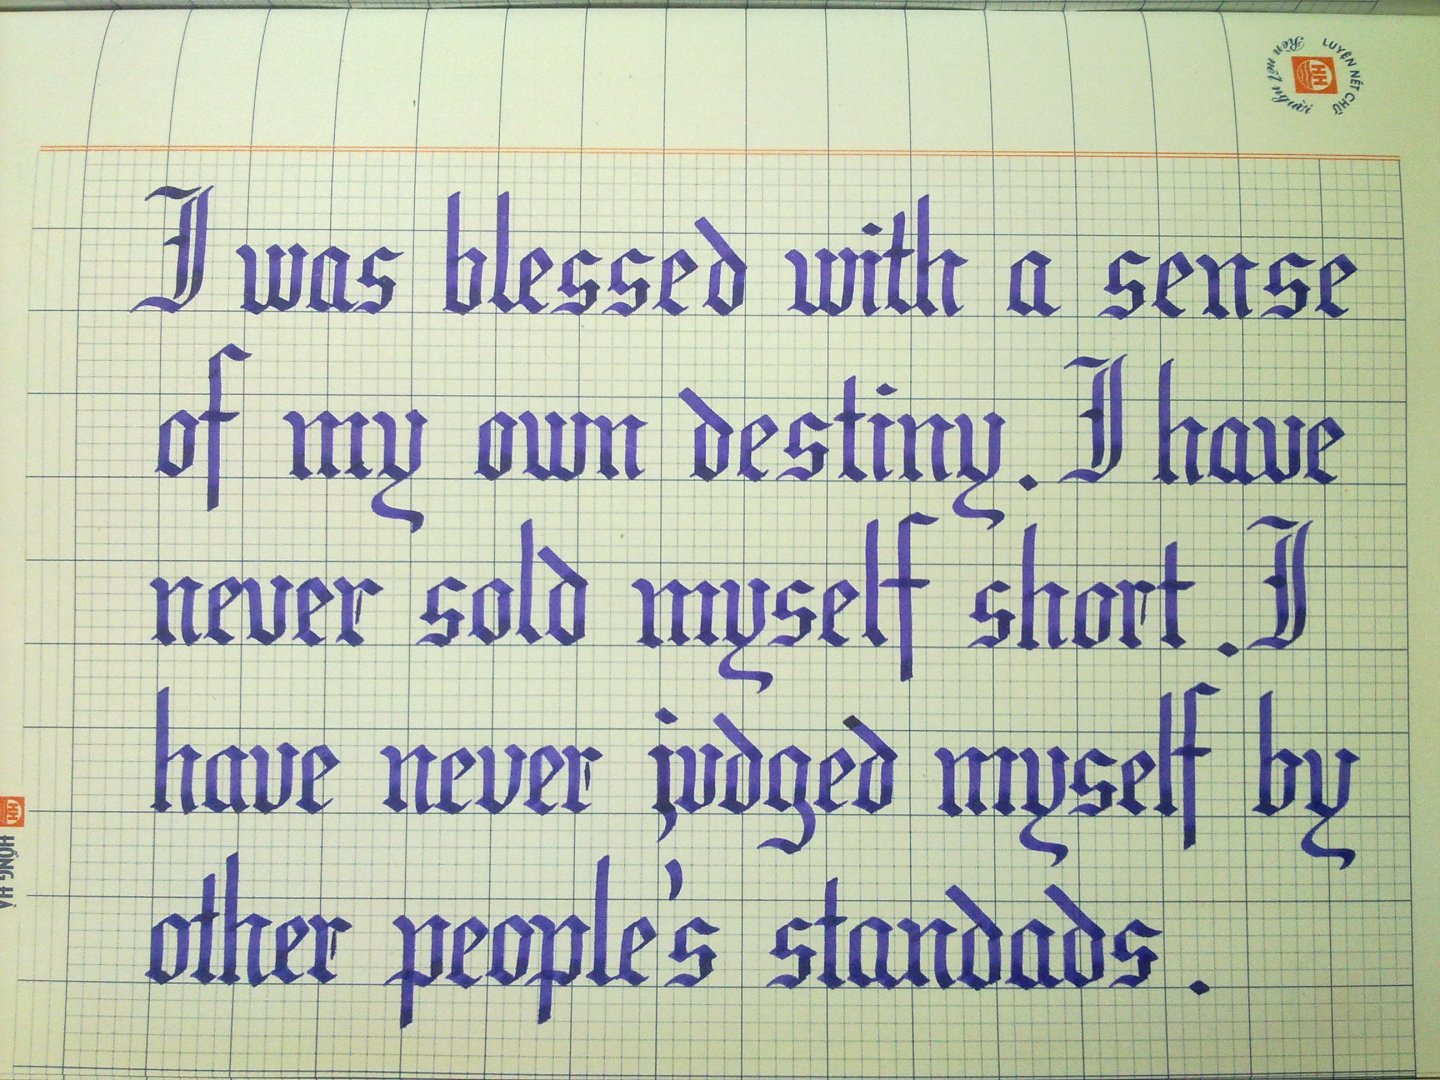 LUYỆN NÉT CHỮ
Rèn nết người
HH
I was blessed with a sense
of my own destiny. I have
never sold myself short. I
have never judged myself by
other people's standads.
HH
HỒNG HÀ